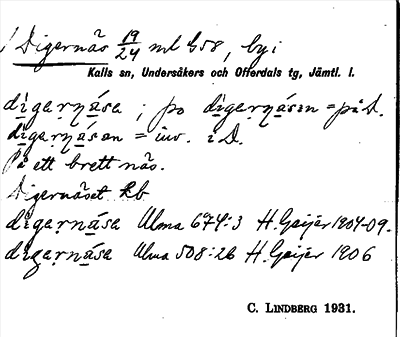 Digernäs 19/24 ml G58, by i
Kalls sn, Undersåkers och Offerdals tg, Jämtl. l.
dìgaṛṇása ; po dìgaṛṇásen = på D.
dìgaṛṇásan = inv. i D.
På ett brett näs.
Digernäset Kb
dìgaṛnása Ulma 674:3 H. Geijer 1904-09.
dìgaṛnása Ulma 508:26 H. Geijer 1906
C. LINDBERG 1931.